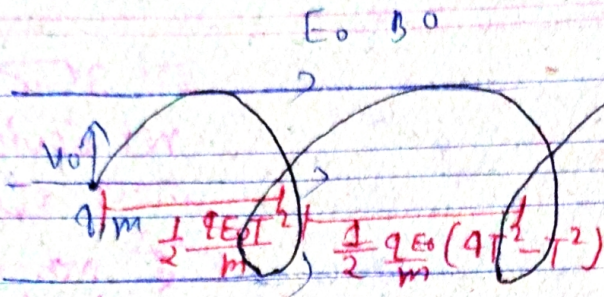 E₀ B₀
V₀
q, m
1/2 qE₀T²/m
1/2 qE₀/m (4T² - T²)